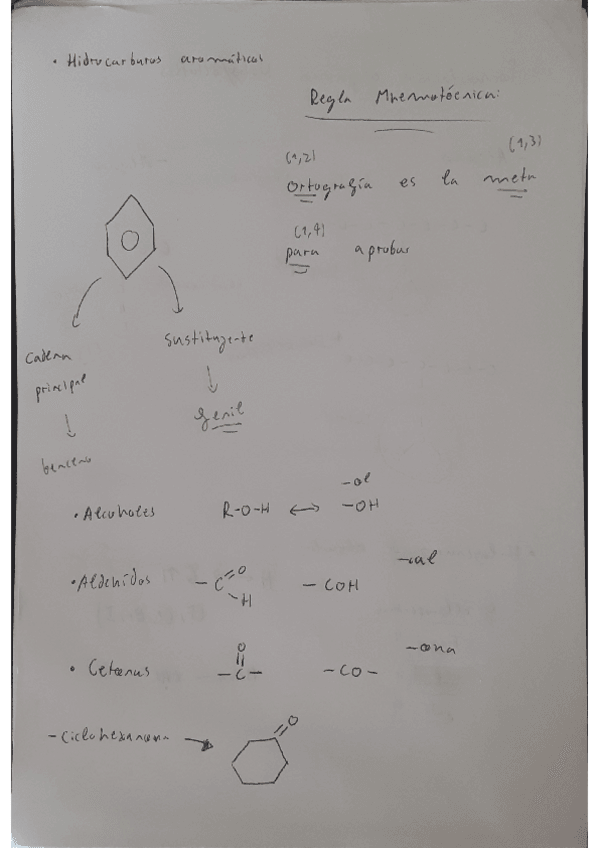 • Hidrocarburos aromáticos
Regla Mnemotécnica:
(1,2) (1,3)
Ortografía es la meta
(1,4)
para aprobar
Cadena
principal
benceno
Sustituyente
fenil
• Alcoholes R-O-H ↔ -OH
-ol
• Aldehídos -C=O H -COH -al
• Cetonas -C- O -CO- -ona
- Ciclohexanona → O